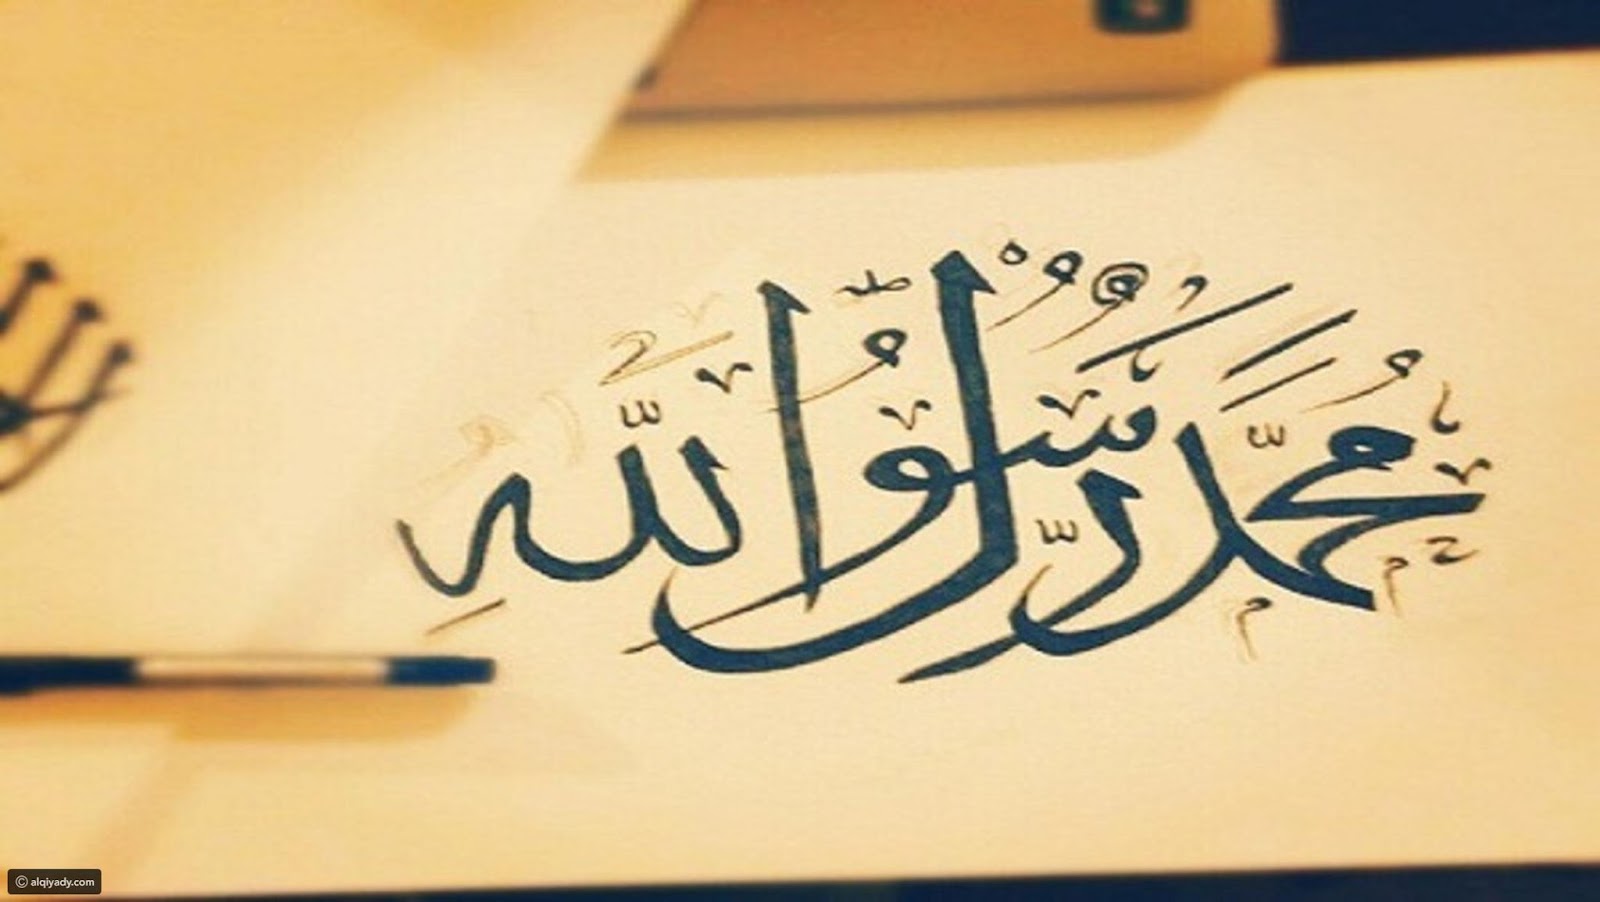 مُحَمَّدٌ رَّسُوْلُ اللّٰهِ
© alqiyady.com